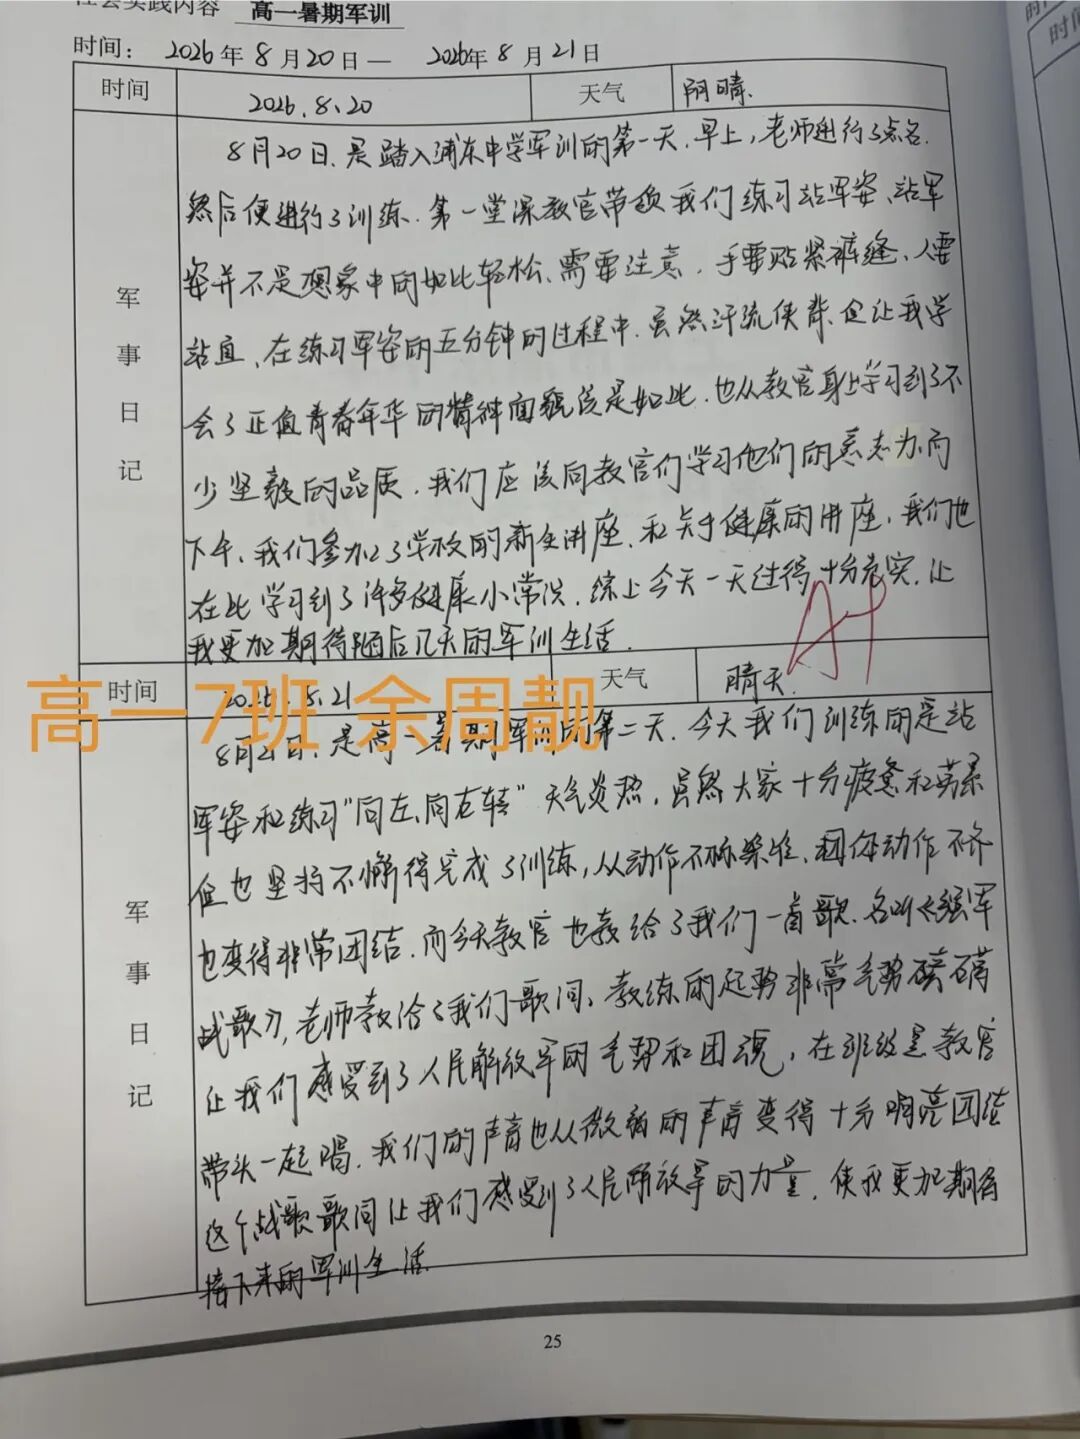 社会实践内容 高一暑期军训
时间： 2026年8月20日— 2026年8月21日
时间 2026.8.20 天气 阴晴.
军事日记
8月20日.是踏入浦东中学军训的第一天.早上,老师进行了点名.
然后便进行了训练.第一堂课教官带领我们练习站军姿、站军
姿并不是想象中的如此轻松、需要注意.手要贴紧裤缝、人要
站直、在练习军姿的五分钟的过程中.虽然汗流侠背.但让我学
会了正值青春年华的精神面貌该是如此.也从教官身上学习到了不
少坚毅的品质.我们应该向教官们学习他们的意志力.而
下午、我们参加了学校的新生讲座、和关于健康的讲座,我们也
在此学习到了许多健康小常识.综上今天一天过得十分充实.让
我更加期待随后几天的军训生活.
A+
时间 2026.8.21 天气 晴天.
高一7班 余周靓
军事日记
8月21日.是高一暑期军训的第二天.今天我们训练的是站
军姿和练习"向左、向右转"天气炎热.虽然大家十分疲惫和劳累
但也坚持不懈得完成了训练,从动作不标准.团体动作不齐
也变得非常团结.而今天教官也教给了我们一首歌.名叫《强军
战歌》,老师教给了我们歌词、教练的起势非常气势磅礴
让我们感受到了人民解放军的气势和团魂,在班级里教官
带头一起唱.我们的声音也从微弱的声音变得十分响亮团结
这个战歌歌词让我们感受到了人民解放军的力量.使我更加期待
接下来的军训生活.
25